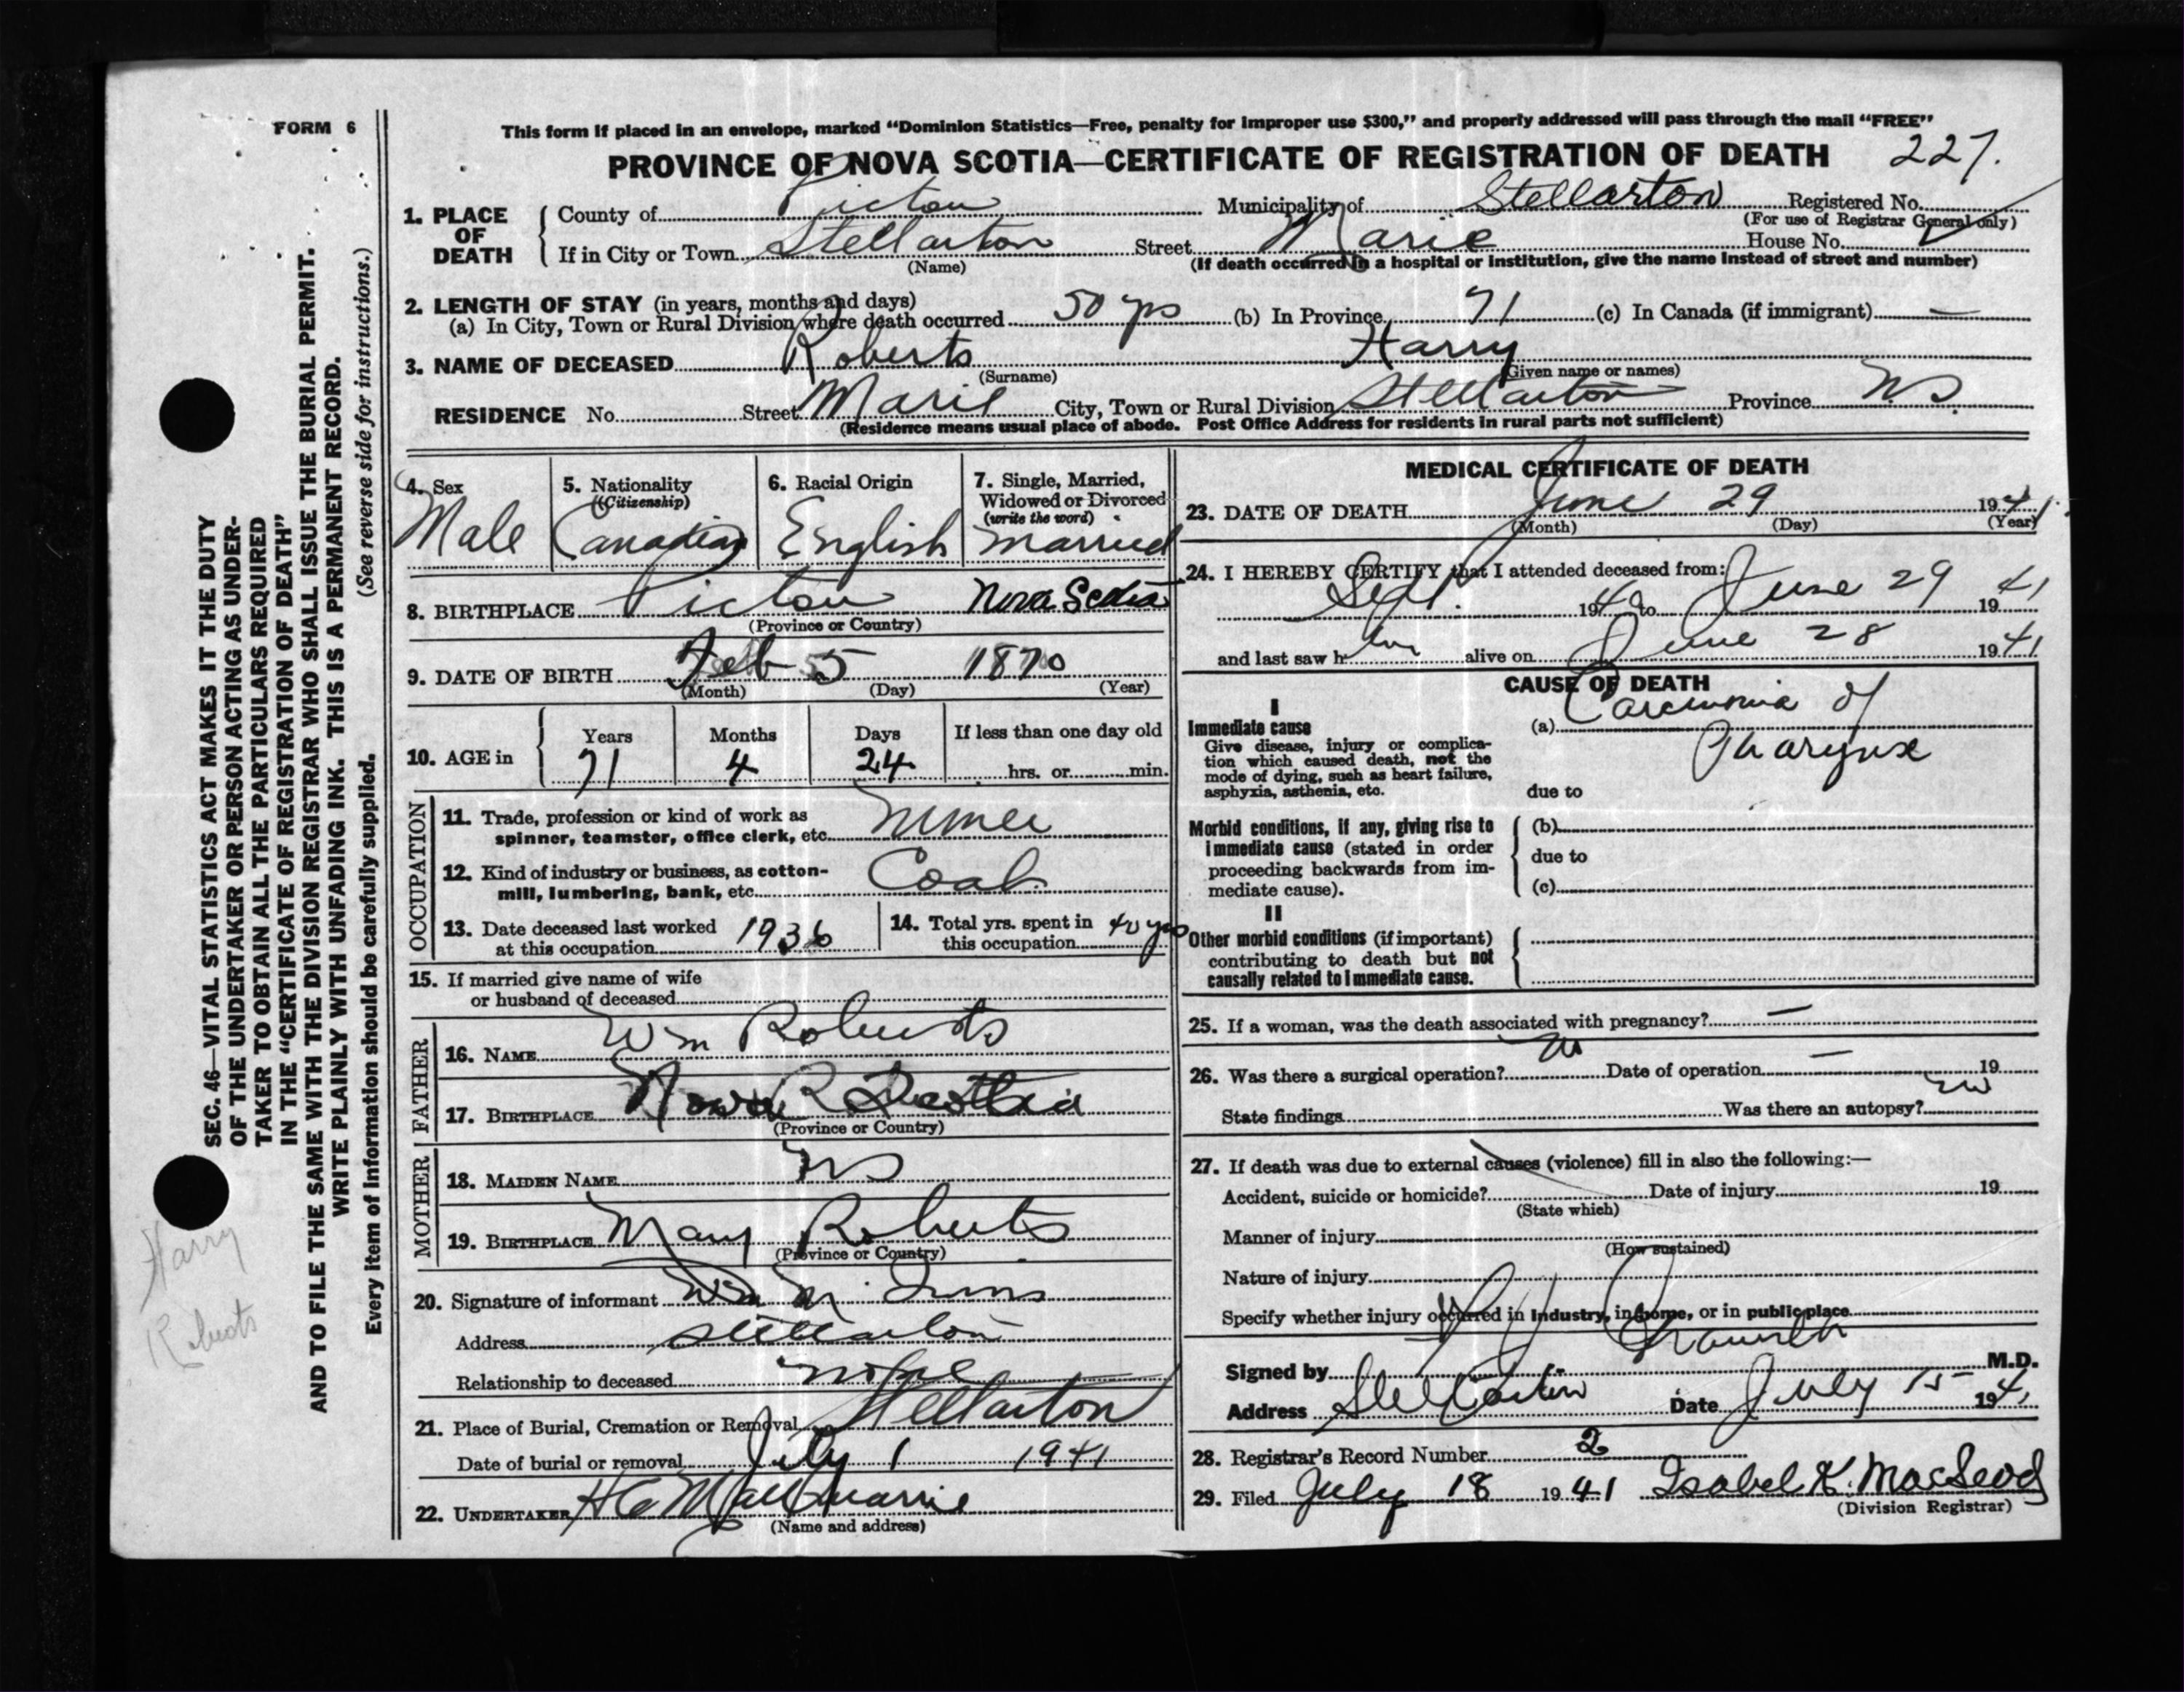 FORM 6
This form if placed in an envelope, marked “Dominion Statistics—Free, penalty for improper use $300,” and properly addressed will pass through the mail “FREE”
PROVINCE OF NOVA SCOTIA—CERTIFICATE OF REGISTRATION OF DEATH 227.
1. PLACE OF DEATH
County of Pictou Municipality of Stellarton Registered No.
(For use of Registrar General only)
If in City or Town Stellarton Street Marie House No.
(Name) (If death occurred in a hospital or institution, give the name instead of street and number)
2. LENGTH OF STAY (in years, months and days)
(a) In City, Town or Rural Division where death occurred 50 yrs (b) In Province 71 (c) In Canada (if immigrant) —
3. NAME OF DECEASED Roberts Harry
(Surname) (Given name or names)
RESIDENCE No. Street Marie City, Town or Rural Division Stellarton Province N.S.
(Residence means usual place of abode. Post Office Address for residents in rural parts not sufficient)
4. Sex
Male
5. Nationality
(Citizenship)
Canadian
6. Racial Origin
English
7. Single, Married,
Widowed or Divorced
(write the word)
Married
8. BIRTHPLACE Pictou Nova Scotia
(Province or Country)
9. DATE OF BIRTH Feb 5 1870
(Month) (Day) (Year)
10. AGE in
Years Months Days If less than one day old
71 4 24 hrs. or min.
OCCUPATION
11. Trade, profession or kind of work as
spinner, teamster, office clerk, etc. Miner
12. Kind of industry or business, as cotton-
mill, lumbering, bank, etc. Coal
13. Date deceased last worked
at this occupation 1936
14. Total yrs. spent in
this occupation 40 yrs
15. If married give name of wife
or husband of deceased
FATHER
16. NAME Wm Roberts
17. BIRTHPLACE Nova Scotia
(Province or Country)
MOTHER
18. MAIDEN NAME NS
19. BIRTHPLACE Mary Roberts
(Province or Country)
20. Signature of informant Wm
Address Stellarton
Relationship to deceased none
21. Place of Burial, Cremation or Removal Stellarton
Date of burial or removal July 1 1941
22. UNDERTAKER
(Name and address)
MEDICAL CERTIFICATE OF DEATH
23. DATE OF DEATH June 29 1941
(Month) (Day) (Year)
24. I HEREBY CERTIFY that I attended deceased from:
Sept. 1940 to June 29 1941
and last saw him alive on June 28 1941
CAUSE OF DEATH
I
Immediate cause
Give disease, injury or complica-
tion which caused death, not the
mode of dying, such as heart failure,
asphyxia, asthenia, etc.
(a) Carcinoma of
Pharynx
due to
Morbid conditions, if any, giving rise to
immediate cause (stated in order
proceeding backwards from im-
mediate cause).
(b)
due to
(c)
II
Other morbid conditions (if important)
contributing to death but not
causally related to immediate cause.
25. If a woman, was the death associated with pregnancy? —
26. Was there a surgical operation? no Date of operation — 19
State findings Was there an autopsy? no
27. If death was due to external causes (violence) fill in also the following:—
Accident, suicide or homicide? Date of injury 19
(State which)
Manner of injury
(How sustained)
Nature of injury
Specify whether injury occurred in industry, in home, or in public place
Signed by M.D.
Address Stellarton Date July 15 1941
28. Registrar's Record Number 2
29. Filed July 18 1941 Isabel K. MacLeod
(Division Registrar)
SEC. 46—VITAL STATISTICS ACT MAKES IT THE DUTY
OF THE UNDERTAKER OR PERSON ACTING AS UNDER-
TAKER TO OBTAIN ALL THE PARTICULARS REQUIRED
IN THE “CERTIFICATE OF REGISTRATION OF DEATH”
AND TO FILE THE SAME WITH THE DIVISION REGISTRAR WHO SHALL ISSUE THE BURIAL PERMIT.
WRITE PLAINLY WITH UNFADING INK. THIS IS A PERMANENT RECORD.
(See reverse side for instructions.)
Every item of information should be carefully supplied.
Harry
Roberts